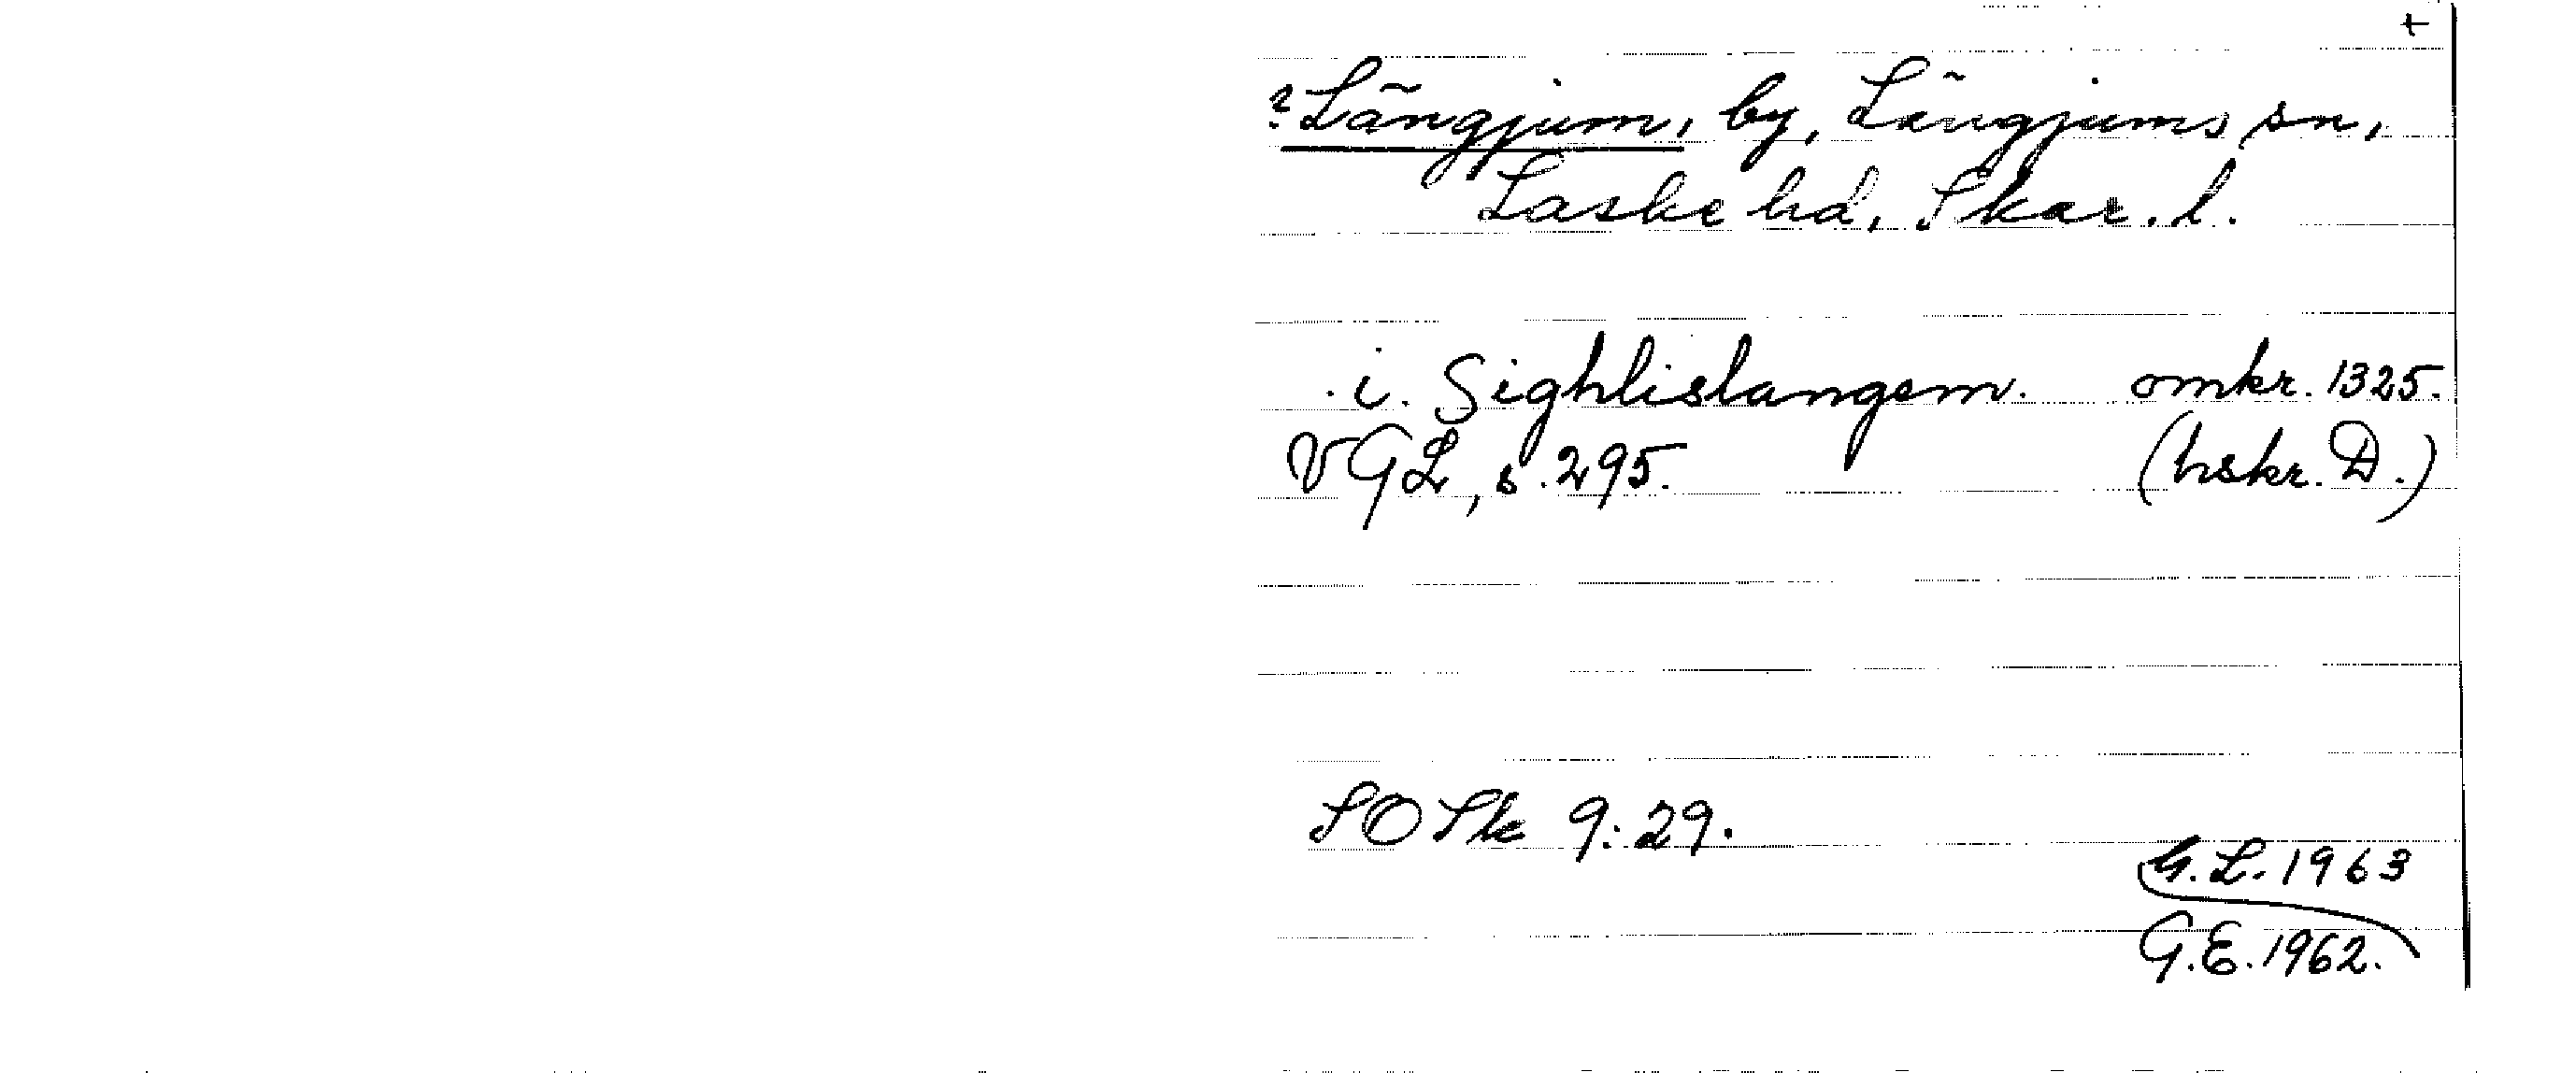 +
? Längjum, by, Längjums sn,
Laske hd, Skar. l.
.i. Sighlislangem. omkr. 1325.
VGL, s. 295. (hskr. D.)
SOSk 9:29.
G.L. 1963
G.E. 1962.